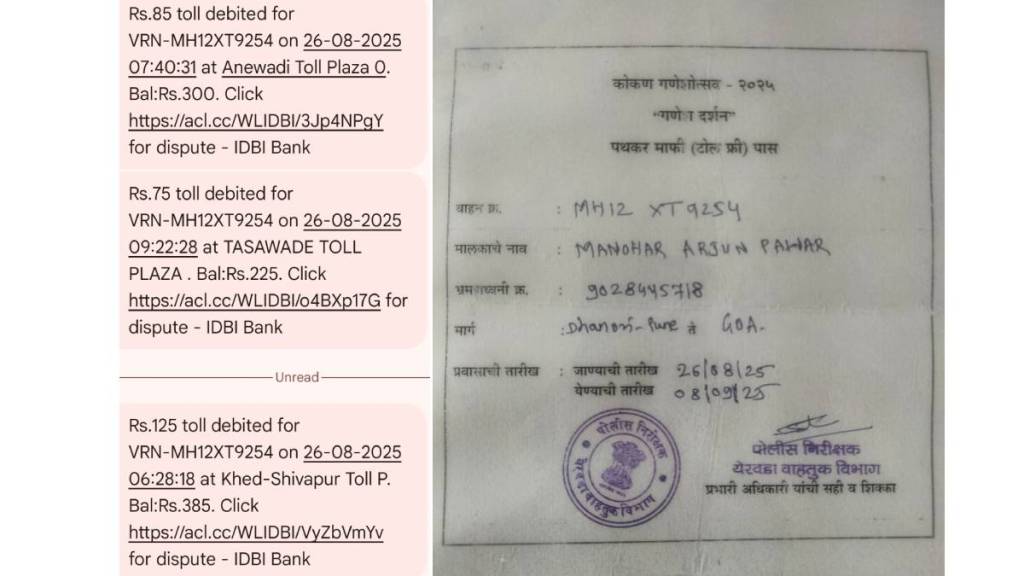 Rs.85 toll debited for
VRN-MH12XT9254 on 26-08-2025
07:40:31 at Anewadi Toll Plaza 0.
Bal:Rs.300. Click
https://acl.cc/WLIDBI/3Jp4NPgY
for dispute - IDBI Bank
Rs.75 toll debited for
VRN-MH12XT9254 on 26-08-2025
09:22:28 at TASAWADE TOLL
PLAZA . Bal:Rs.225. Click
https://acl.cc/WLIDBI/o4BXp17G for
dispute - IDBI Bank
Unread
Rs.125 toll debited for
VRN-MH12XT9254 on 26-08-2025
06:28:18 at Khed-Shivapur Toll P.
Bal:Rs.385. Click
https://acl.cc/WLIDBI/VyZbVmYv
for dispute - IDBI Bank
कोकण गणेशोत्सव - २०२५
"गणेश दर्शन"
पथकर माफी (टोल फ्री) पास
वाहन क्र. : MH12 XT9254
मालकाचे नाव : MANOHAR ARJUN PAWAR
भ्रमणध्वनी क्र. : 9028445718
मार्ग : Dhanori - Pune ते GOA.
प्रवासाची तारीख : जाण्याची तारीख 26/08/25
येण्याची तारीख 08/09/25
पोलीस निरीक्षक
येरवडा वाहतुक विभाग
पोलीस निरीक्षक
येरवडा वाहतुक विभाग
प्रभारी अधिकारी यांची सही व शिक्का